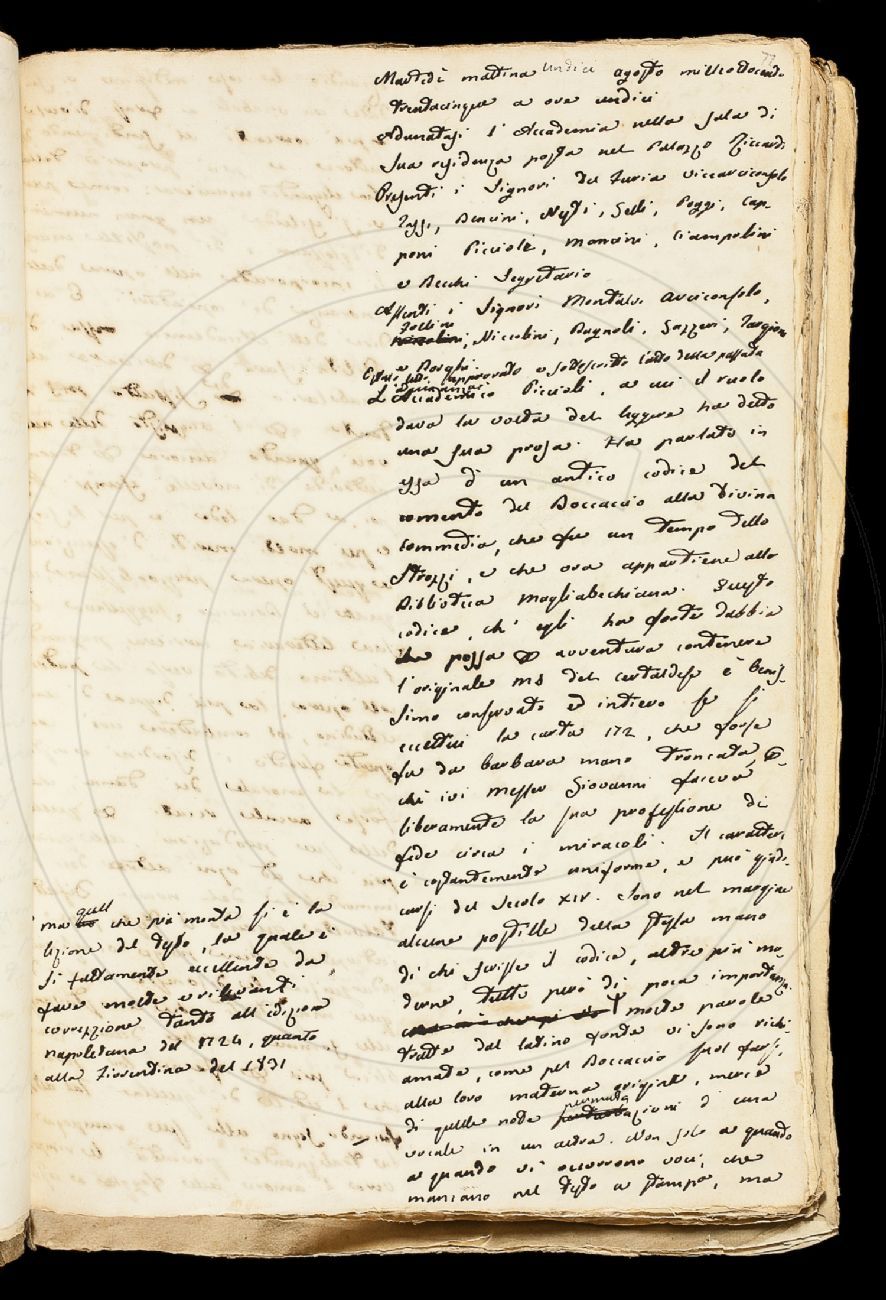 77
Martedì mattina undici agosto milleottocento
trentacinque a ore undici
Adunatasi l'Accademia nella sala di
sua residenza posta nel Palazzo Riccardi
Presenti i Signori Del Furia Viccearciconsolo
Tassi, Bencini, Nesti, Gelli, Poggi, Cap-
poni Piccioli, Mancini, Ciampolini
e Becchi Segretario
Assenti i Signori Montalvi Arciconsolo,
Follini
Niccolini, Bagnoli, Gazzeri, Targioni
e Borghi
È stato letto approvato e sottoscritto l'atto della passata
adunanza
L'Accademico Piccioli, a cui il ruolo
dava la volta del leggere ha detto
una sua prosa. Ha parlato in
essa d'un antico codice del
comento del Boccaccio alla Divina
Commedia, che fu un tempo dello
Strozzi, e che ora appartiene alla
Biblioteca Magliabechiana. Questo
codice, ch'egli ha forte dubbio
possa avventura contenere
l'originale ms del certaldese è benis-
simo conservato ed intiero se si
eccettui la carta 172, che forse
fu da barbara mano troncata,
chè ivi messer Giovanni faceva
liberamente la sua professione di
fede circa i miracoli. Il carattere
è costantemente uniforme, e può giudi-
carsi del Secolo XIV. Sono nel margine
alcune postille della stessa mano
di chi scrisse il codice, altre più mo-
derne, tutte però di poca importanza.
molte parole
tratte dal latino fonte vi sono richi-
amate, come pel Boccaccio suol farsi,
alla loro materna origine, mercè
di quelle note permutazioni d'una
vocale in un altra. Non solo a quando
a quando vi occorrono voci, che
mancano nel testo a stampa, ma
ma quel che più monta si è la
lezione del testo, la quale è
sì fattamente eccellente da
fare molte e rilevanti
correzzione tanto all'edizione
napoletana del 1724, quanto
alla Fiorentina del 1831